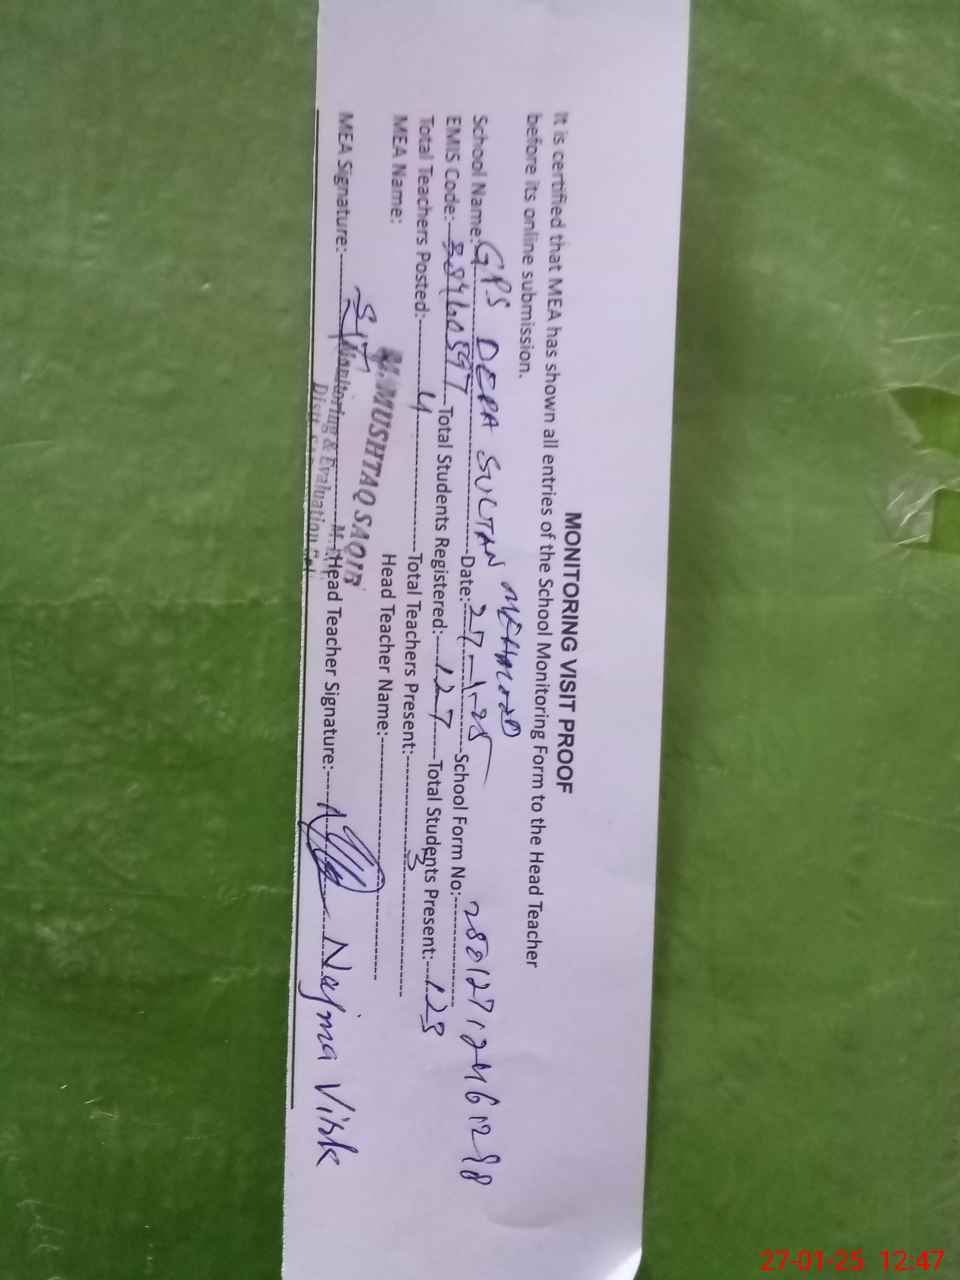 MONITORING VISIT PROOF
It is certified that MEA has shown all entries of the School Monitoring Form to the Head Teacher
before its online submission.
School Name: GPS DERA SULTAN MEHMOOD Date: 27-1-25 School Form No: 28012712461298
EMIS Code: 38460597 Total Students Registered: 127 Total Students Present: 123
Total Teachers Posted: 4 Total Teachers Present: 3
MEA Name: M. MUSHTAQ SAQIB Head Teacher Name:
MEA Signature: Head Teacher Signature: Najma Virk
Monitoring & Evaluation
27-01-25 12:47